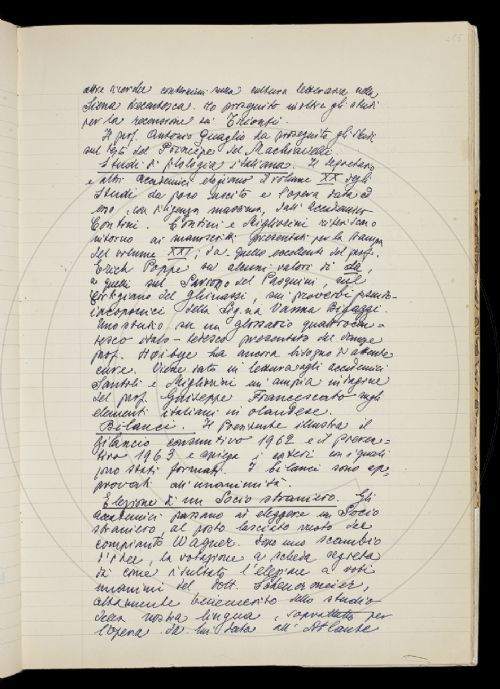 altre ricerche continiane sulla cultura letteraria nella
Siena Ho proseguito inoltre gli studi
per la recensione dei Trionfi.
Il prof. Antonio Quaglio ha proseguito gli studi
sul testo del Principe del Machiavelli.
Studi di filologia italiana. Il Segretario
e altri accademici elogiano il volume XX degli
Studi da poco uscito e l'opera data ad
esso, con diligenza massima, dall'accademico
Contini. Contini e Migliorini riferiscono
intorno ai manoscritti presentati per la stampa
del volume XXI; da quello eccellente del prof.
Erich Poppe su alcuni valori di da,
a quelli sul del Pasquini, sul
del su proverbi
della Sig.na Vanna Bigazzi.
Uno studio, su un glossario quattrocen-
tesco italo-tedesco presentato dal
prof. Høybye ha ancora bisogno d'attente
cure. Viene data in lettura agli accademici
Santoli e Migliorini un'ampia indagine
del prof. Giuseppe Francescato sugli
elementi italiani in olandese.
Bilanci. Il Presidente illustra il
Bilancio consuntivo 1962 e il Preven-
tivo 1963 e spiega i criteri con i quali
sono stati formati. I bilanci sono ap-
provati all'unanimità.
Elezione di un Socio straniero. Gli
accademici passano ad eleggere un Socio
straniero al posto lasciato vuoto dal
compianto Wagner. Dopo uno scambio
d'idee, la votazione a scheda segreta
dà come risultato l'elezione a voti
unanimi del dott. Scheuermeier,
altamente benemerito dello studio
della nostra lingua, soprattutto per
l'opera da lui data all'Atlante